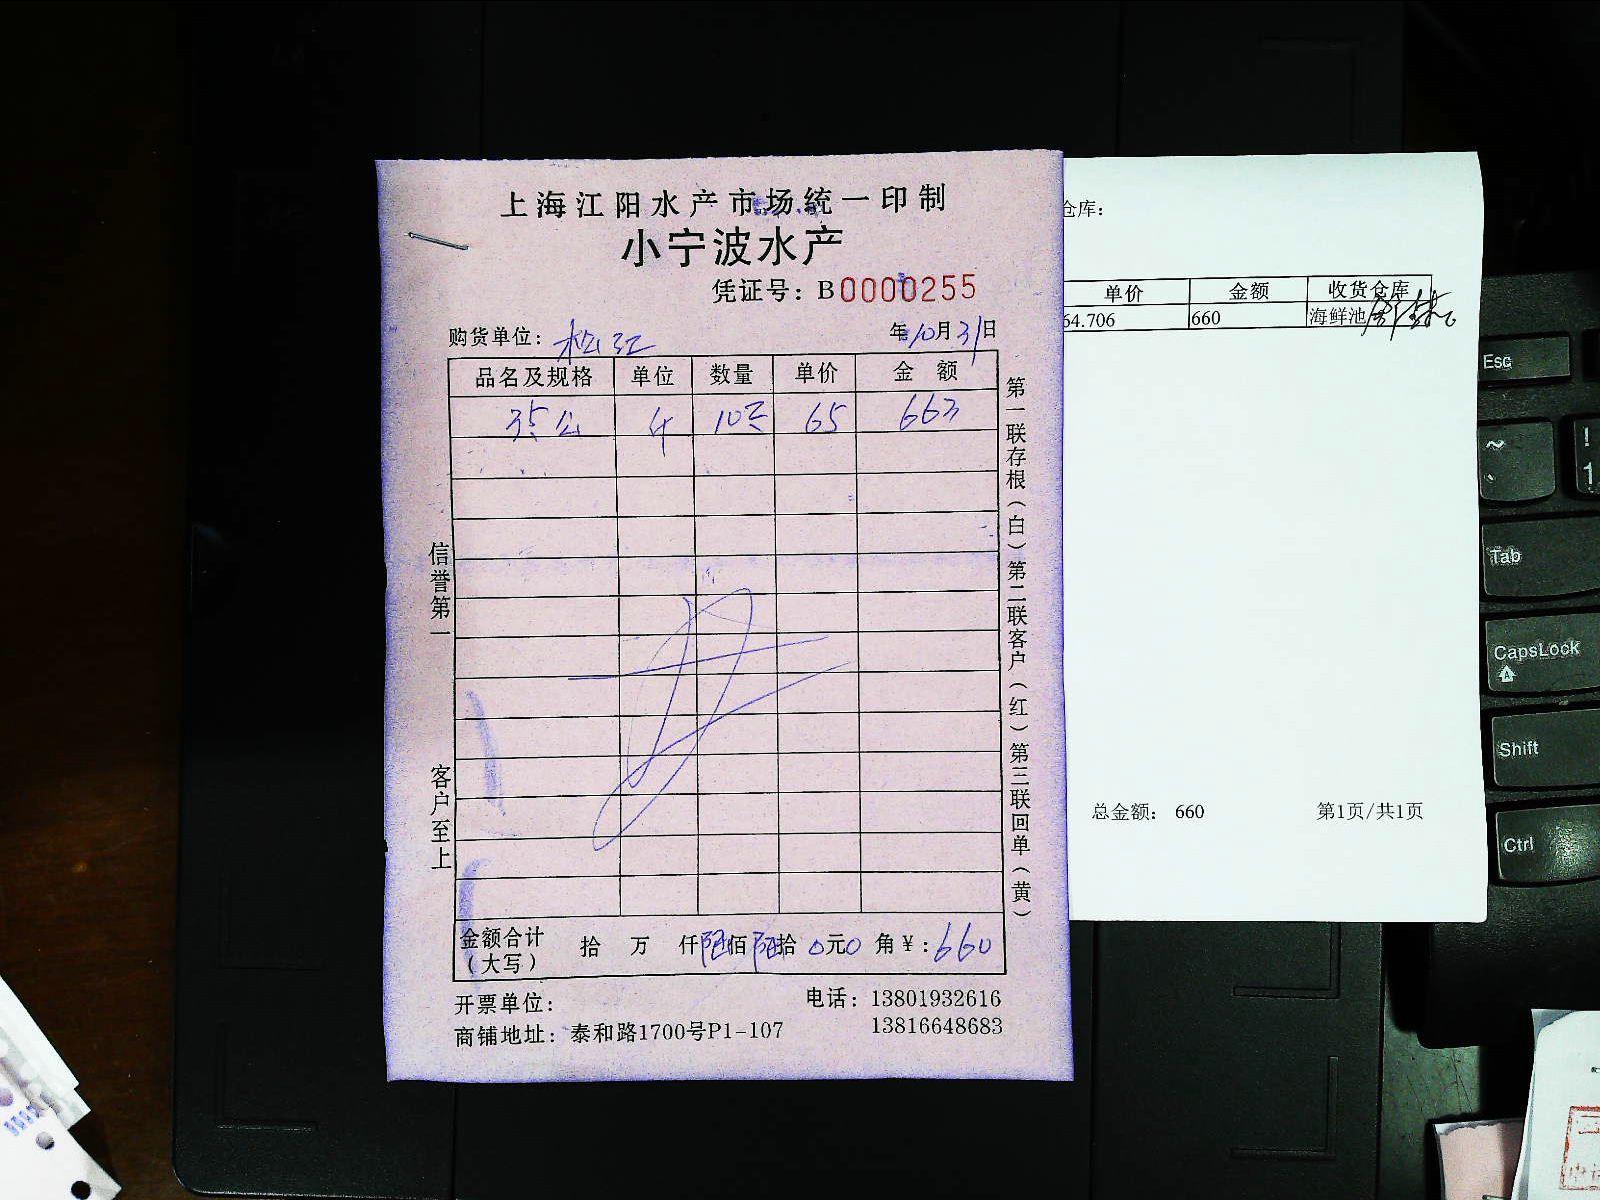 上海江阳水产市场统一印制
小宁波水产
凭证号：B0000255
购货单位：松江 年10月31日
品名及规格 单位 数量 单价 金额
公 斤 10 65 663
信誉第一
客户至上
第一联存根（白）第二联客户（红）第三联回单（黄）
金额合计（大写） 拾 万 仟陆佰陆拾0元0角￥：660
开票单位： 电话：13801932616
13816648683
商铺地址：泰和路1700号P1-107
仓库：
单价 金额 收货仓库
64.706 660 海鲜池
总金额： 660 第1页/共1页
Esc
~
`
!
1
Tab
CapsLock
A
Shift
Ctrl